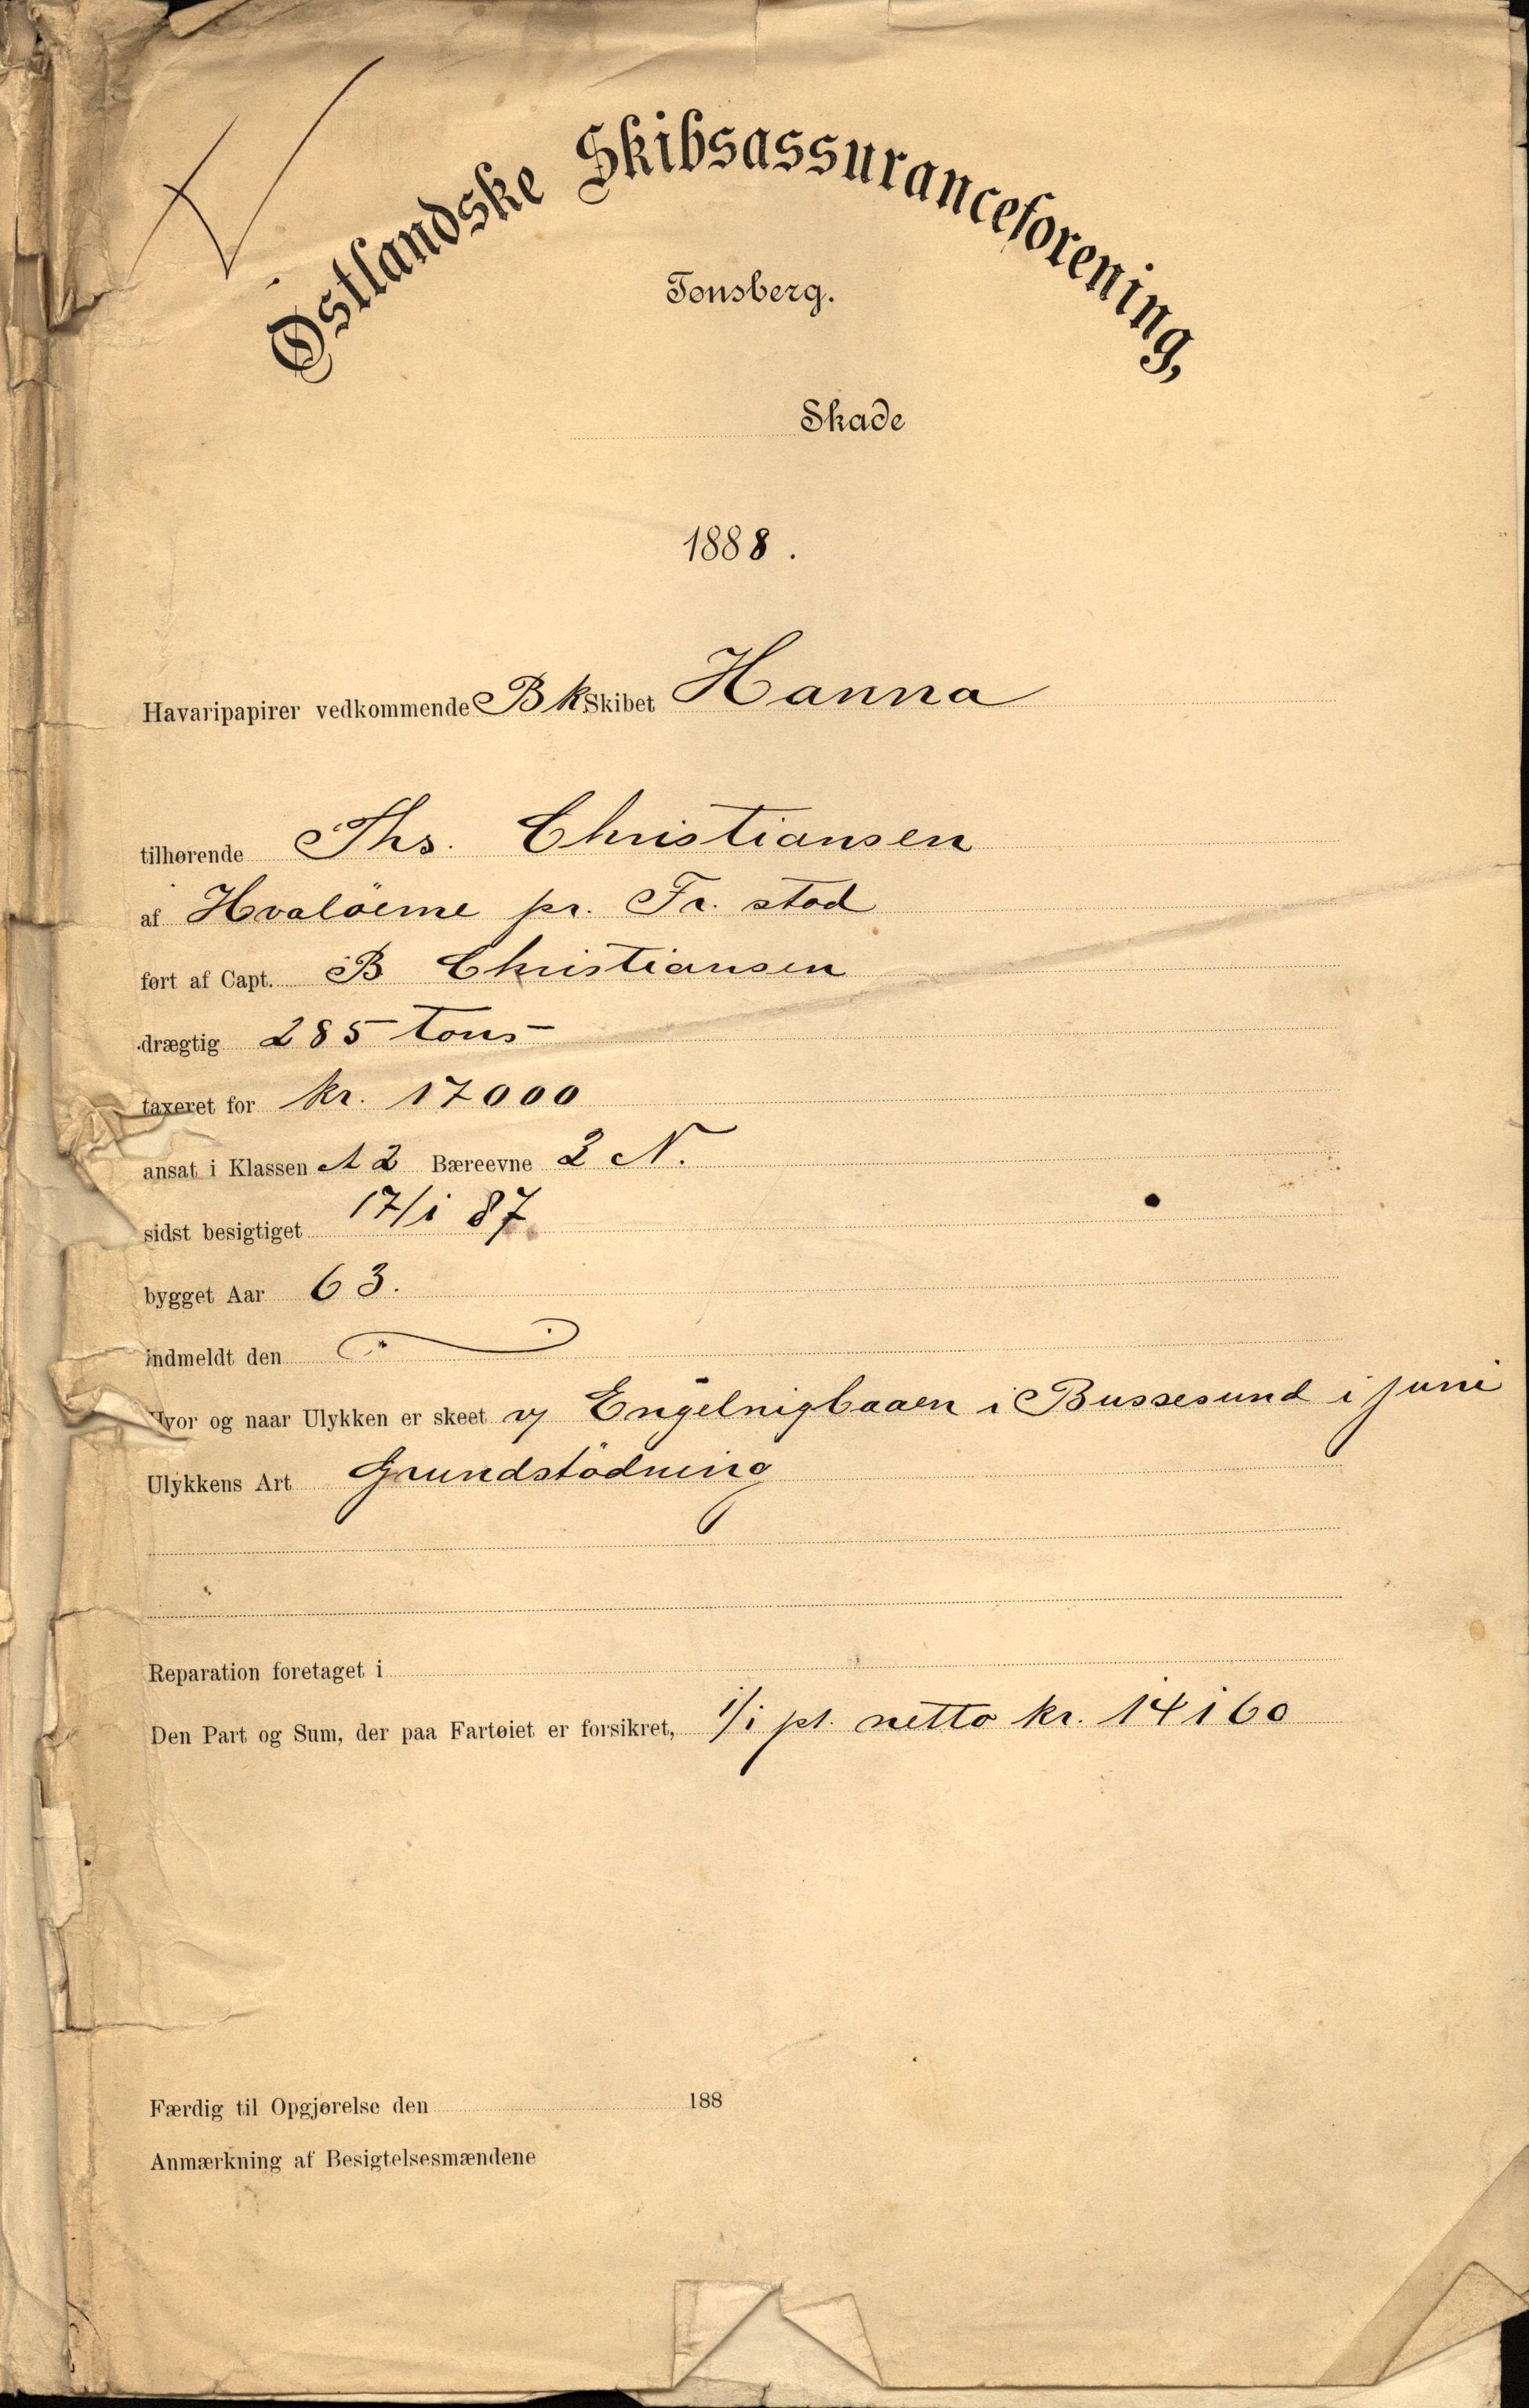 Østlandske Skibsassuranceforening,
Tønsberg.
Skade
1888.
Havaripapirer vedkommende Bk Skibet Hanna
tilhørende Ths. Christiansen
af Hvalöerne pr. Fr. stad
ført af Capt. B Christiansen
drægtig 285 Tons
taxeret for kr. 17000
ansat i Klassen A2 Bæreevne 2 N.
sidst besigtiget 17/1 87
bygget Aar 63.
indmeldt den
Hvor og naar Ulykken er skeet v/ Engelnigbaaen i Bussesund i juni
Ulykkens Art Grundstödning
Reparation foretaget i
Den Part og Sum, der paa Fartøiet er forsikret, 1/1 pt. netto kr. 14160
Færdig til Opgjørelse den 188
Anmærkning af Besigtelsesmændene